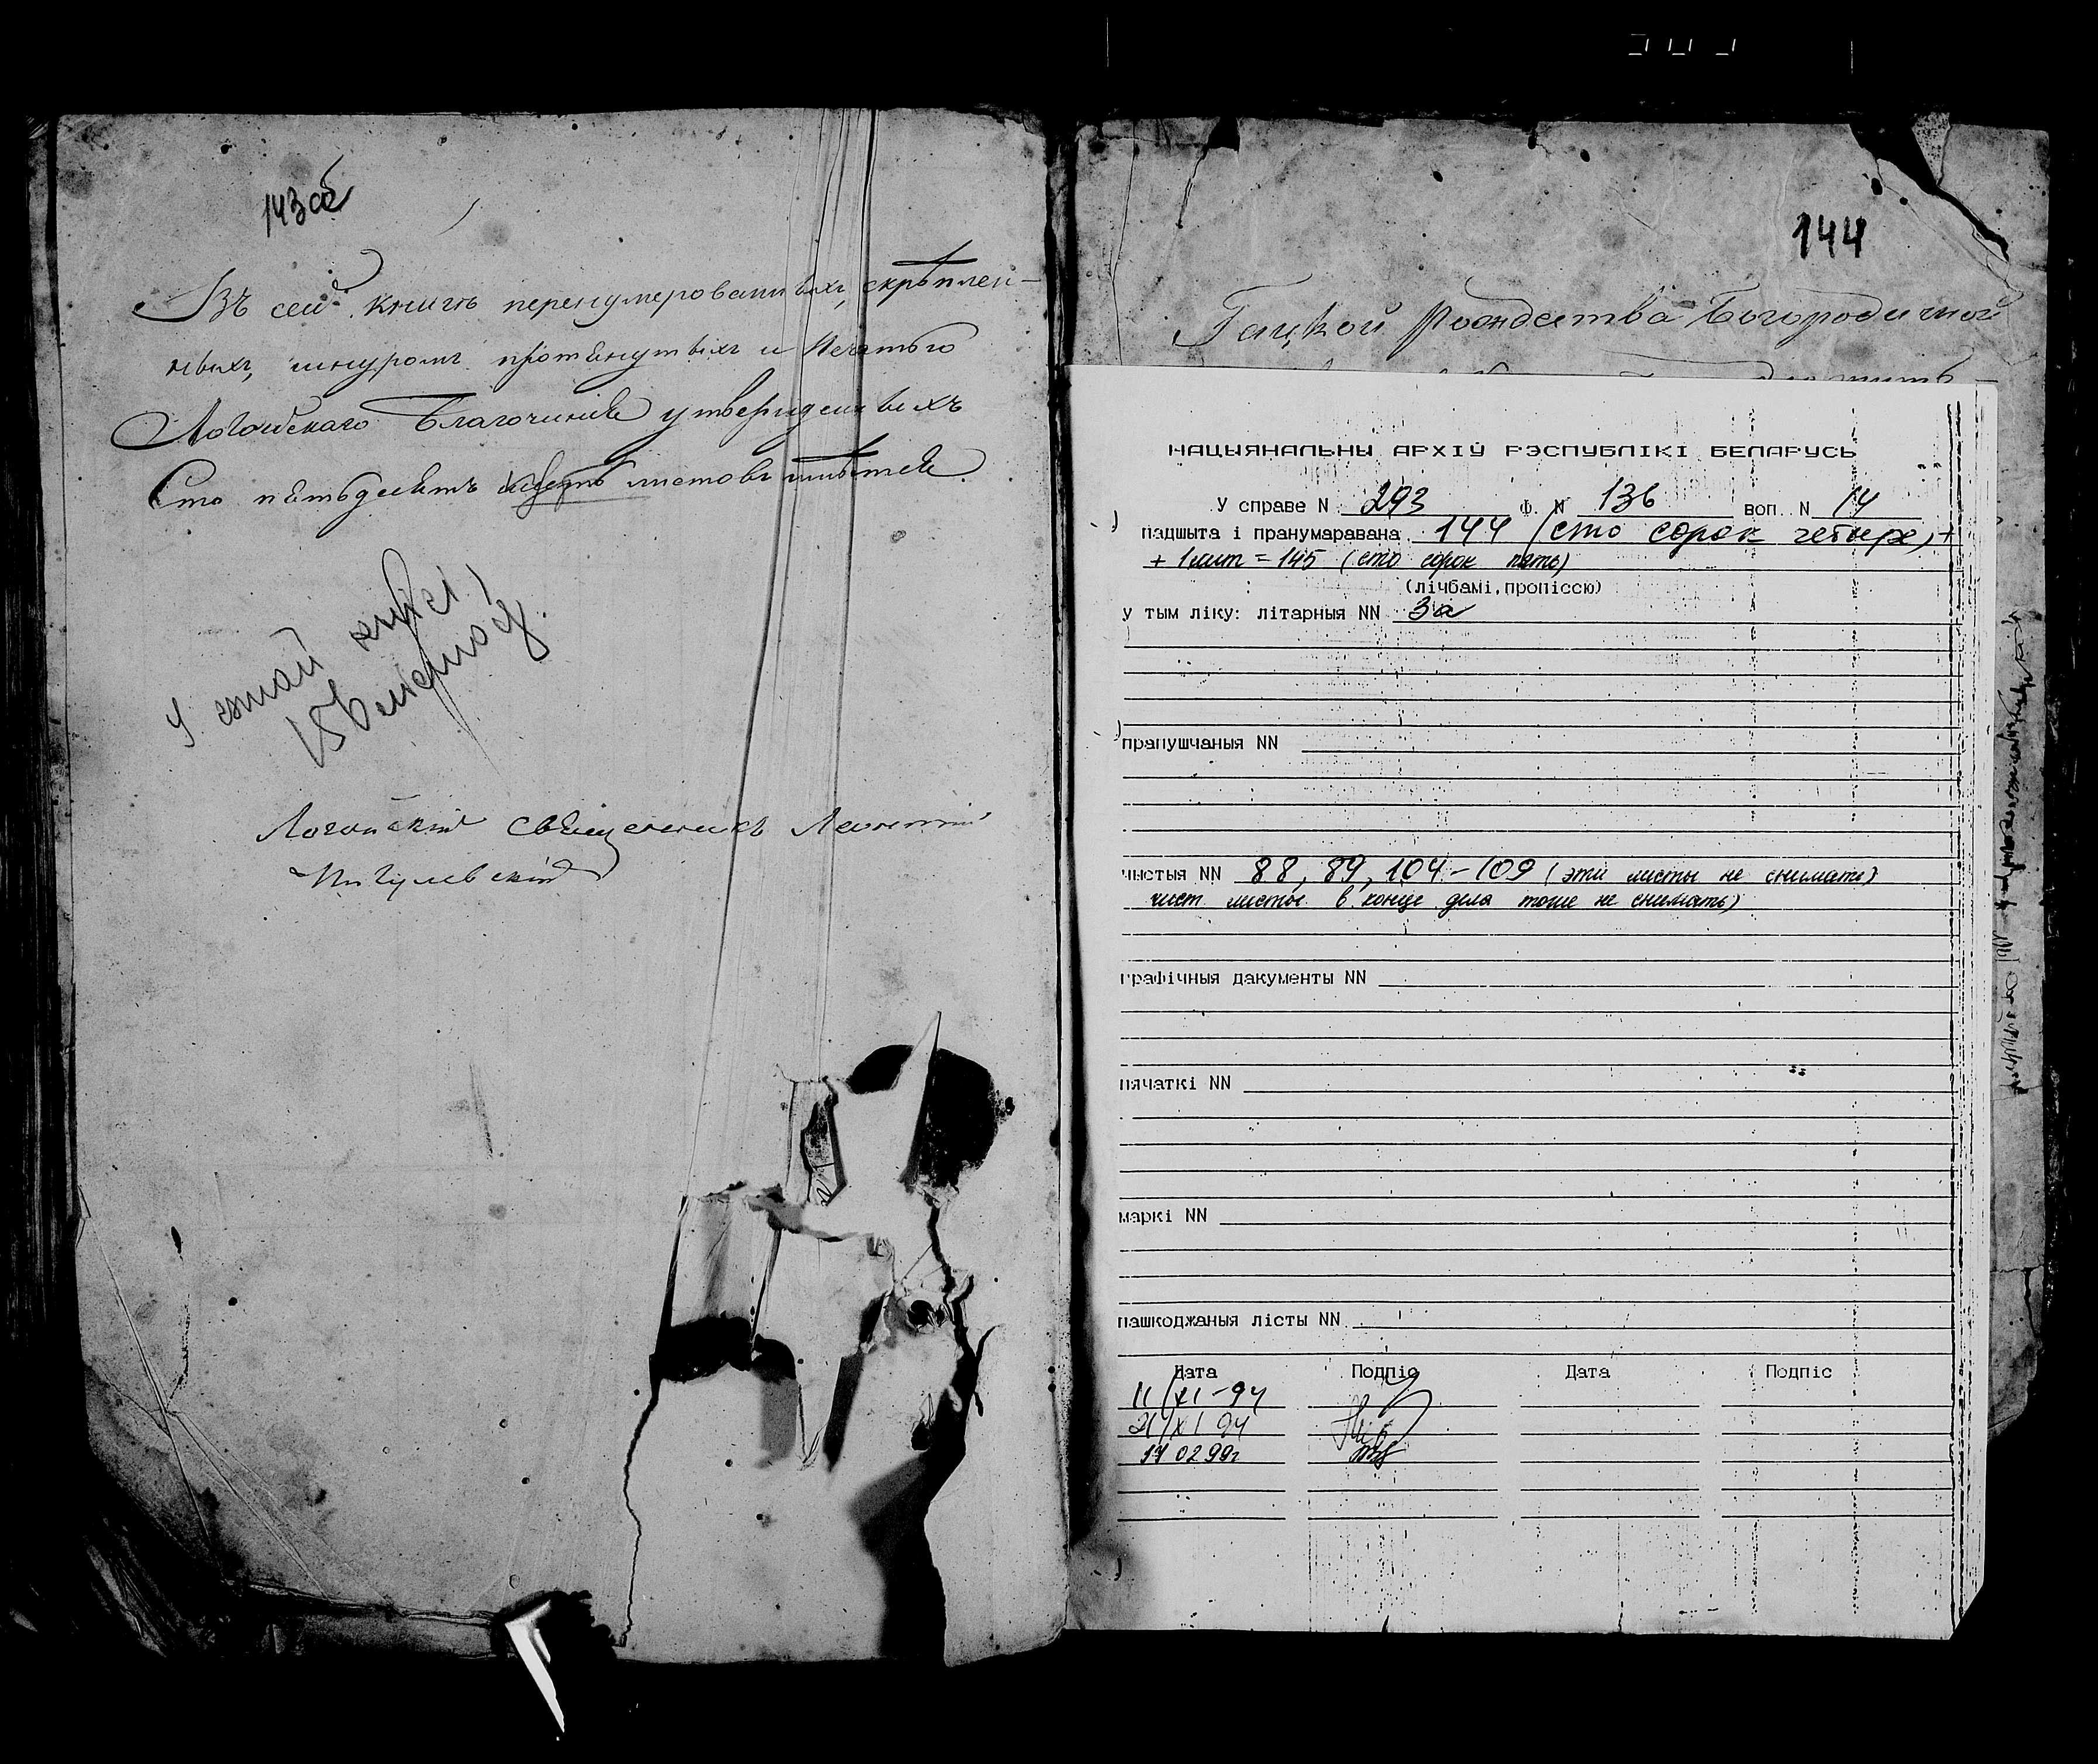 143 об
Въ сей книгѣ перенумерованныхъ, скрѣплен-
ныхъ, шнуромъ протянутыхъ и печатью
Логойскаго Благочинія утвержденныхъ
Сто пятьдесятъ шесть листовъ имѣется
У гэтай кнізе
156 листоў
Логойскій Священникъ Леонтій
Пигулевскій
144
Гайской Рождества Богородичной
НАЦЫЯНАЛЬНЫ АРХІЎ РЭСПУБЛІКІ БЕЛАРУСЬ
У справе N 293 Ф. N 136 воп. N 14
падшыта і пранумаравана 144 (сто сорок четыре) +
+ 1 лит = 145 (сто сорок пять)
(лічбамі, пропіссю)
у тым ліку: літарныя NN 3а
прапушчаныя NN
чыстыя NN 88, 89, 104-109 (эти листы не снимать)
чист листы в конце дела тоже не снимать)
графічныя дакументы NN
пячаткі NN
маркі NN
пашкоджаныя лісты NN
Дата Подпіс Дата Подпіс
11/XI-94
21/XI 94
17 02 99г